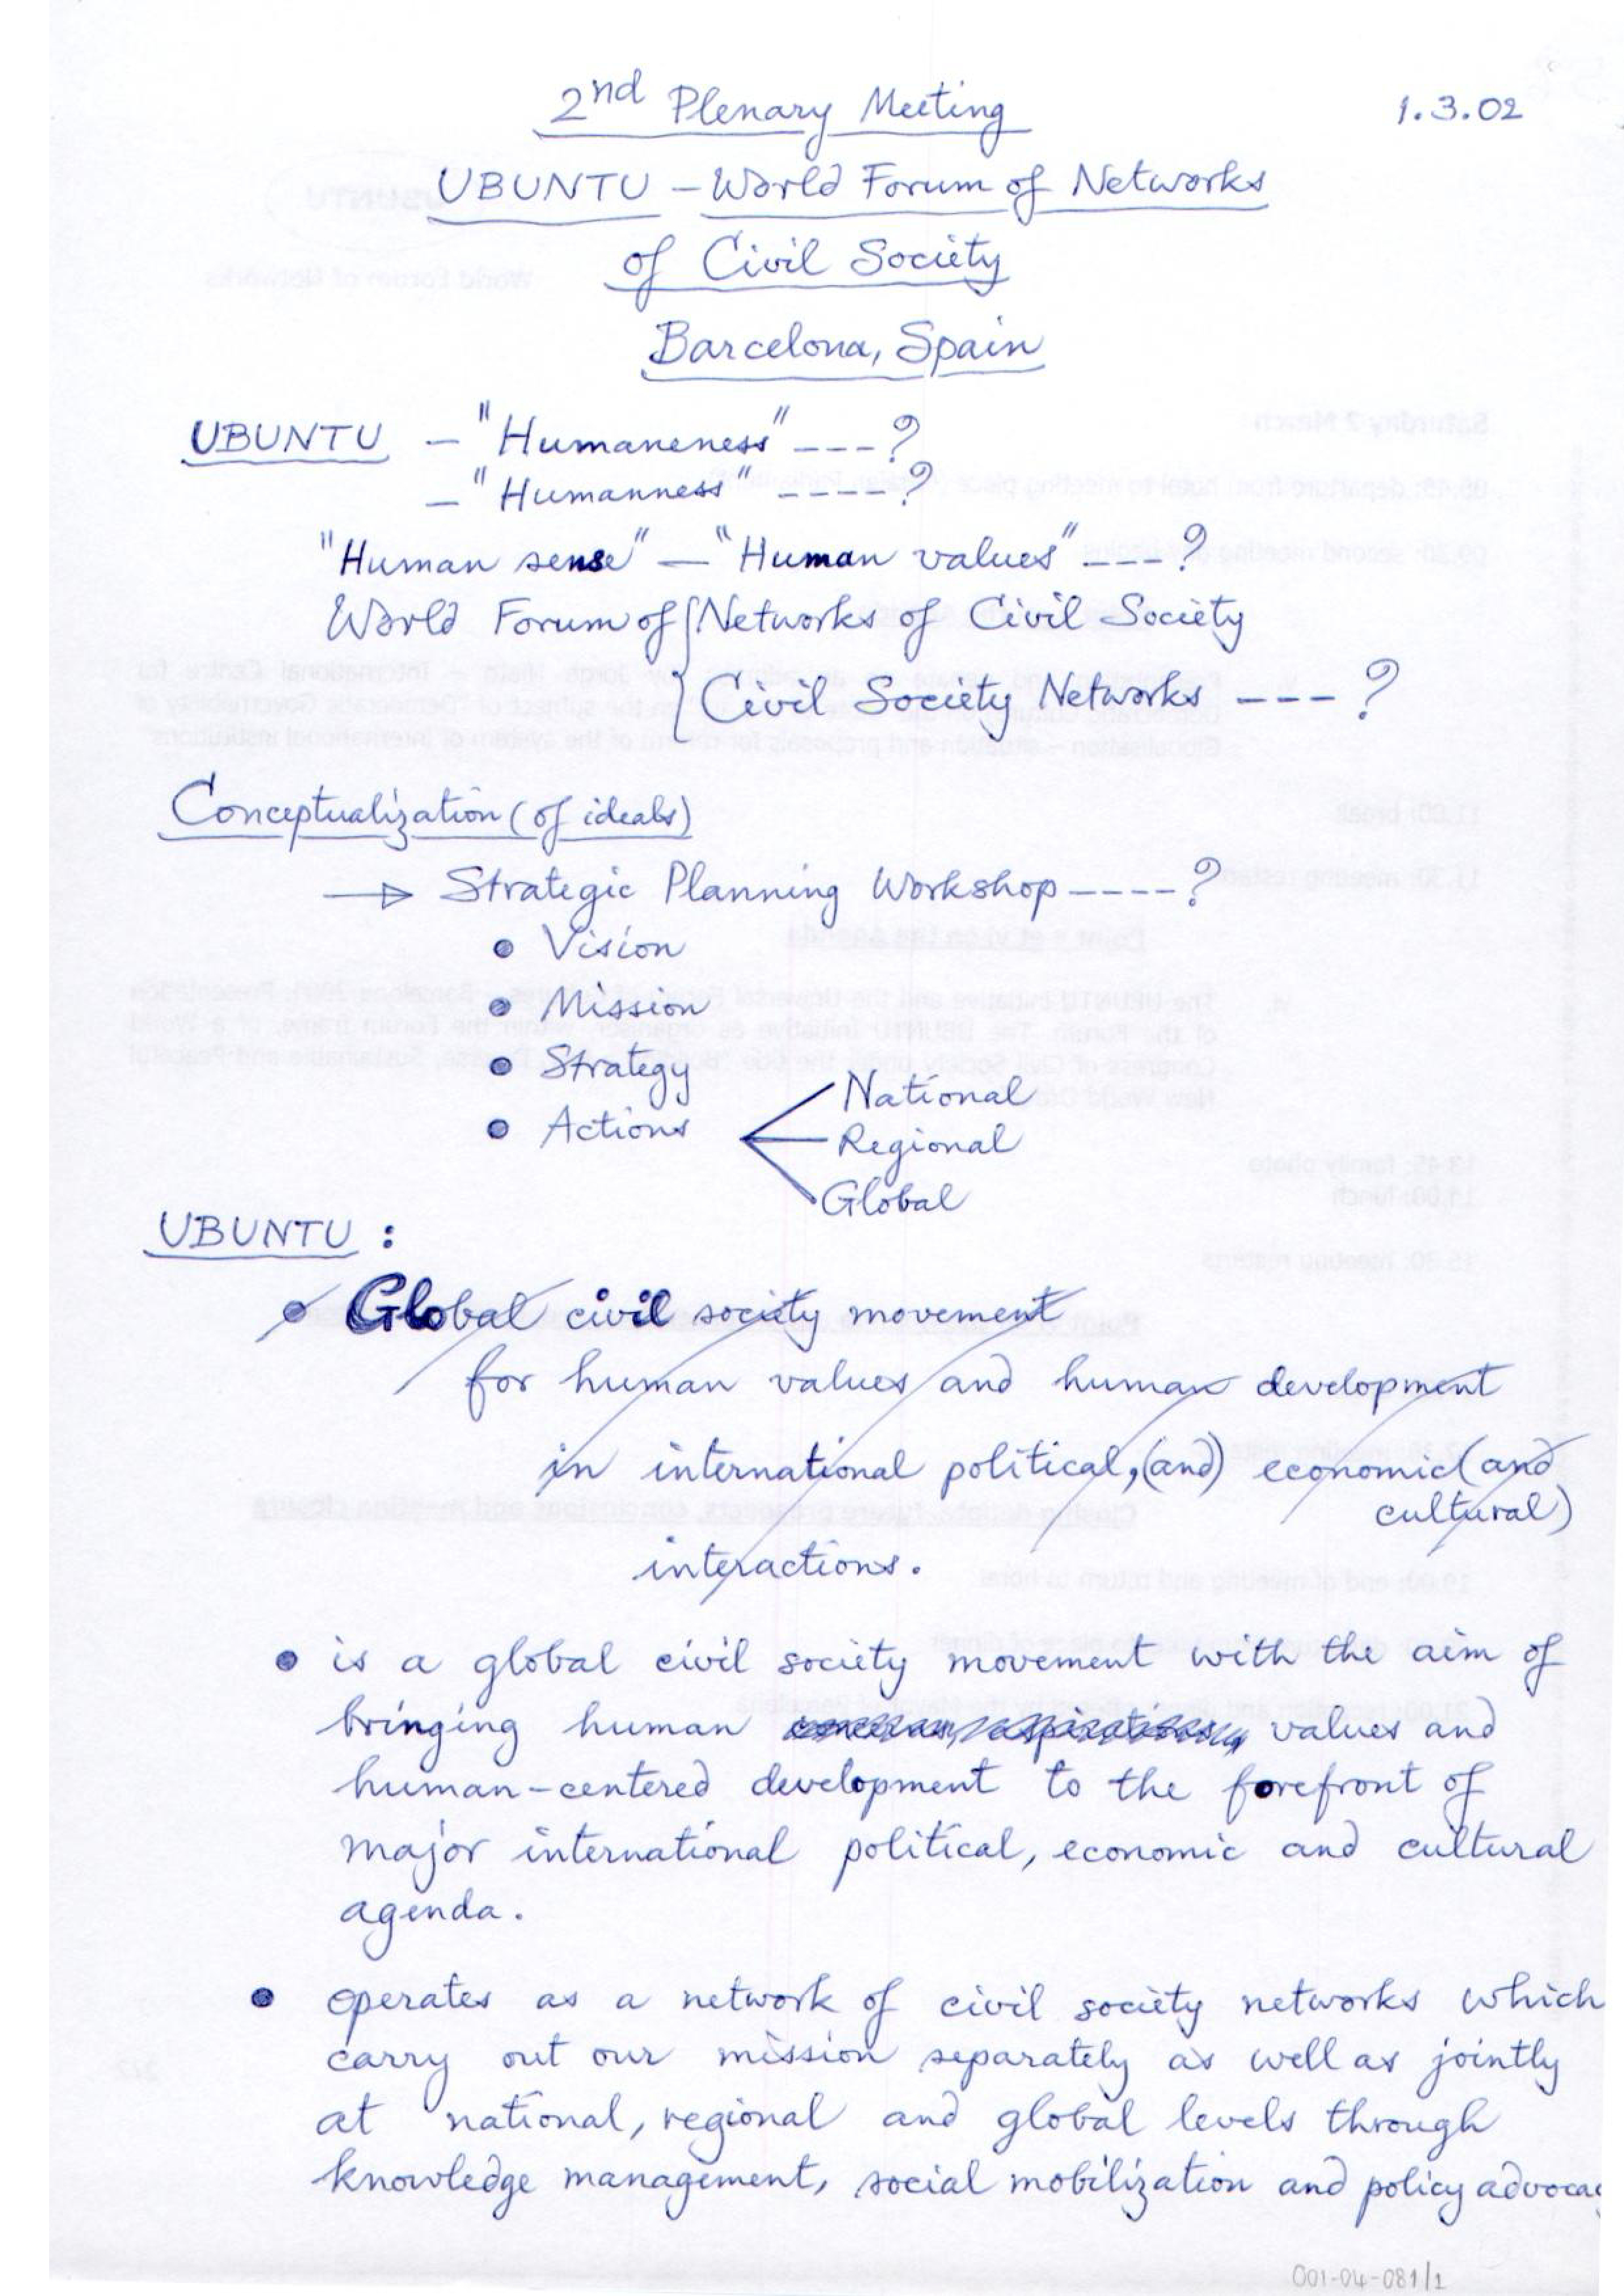 2nd Plenary Meeting
1.3.02
UBUNTU – World Forum of Networks
of Civil Society
Barcelona, Spain
UBUNTU – "Humaneness" ---?
– "Humanness" ----?
"Human sense" – "Human values" ---?
World Forum of { Networks of Civil Society
{ Civil Society Networks --- ?
Conceptualization (of ideals)
→ Strategic Planning Workshop ----?
• Vision
• Mission
• Strategy
• Actions
National
Regional
Global
UBUNTU :
• Global civil society movement
for human values and human development
in international political, (and) economic (and
cultural)
interactions.
• is a global civil society movement with the aim of
bringing human values and
human-centered development to the forefront of
major international political, economic and cultural
agenda.
• operates as a network of civil society networks which
carry out our mission separately as well as jointly
at national, regional and global levels through
knowledge management, social mobilization and policy advocac
001-04-081/1